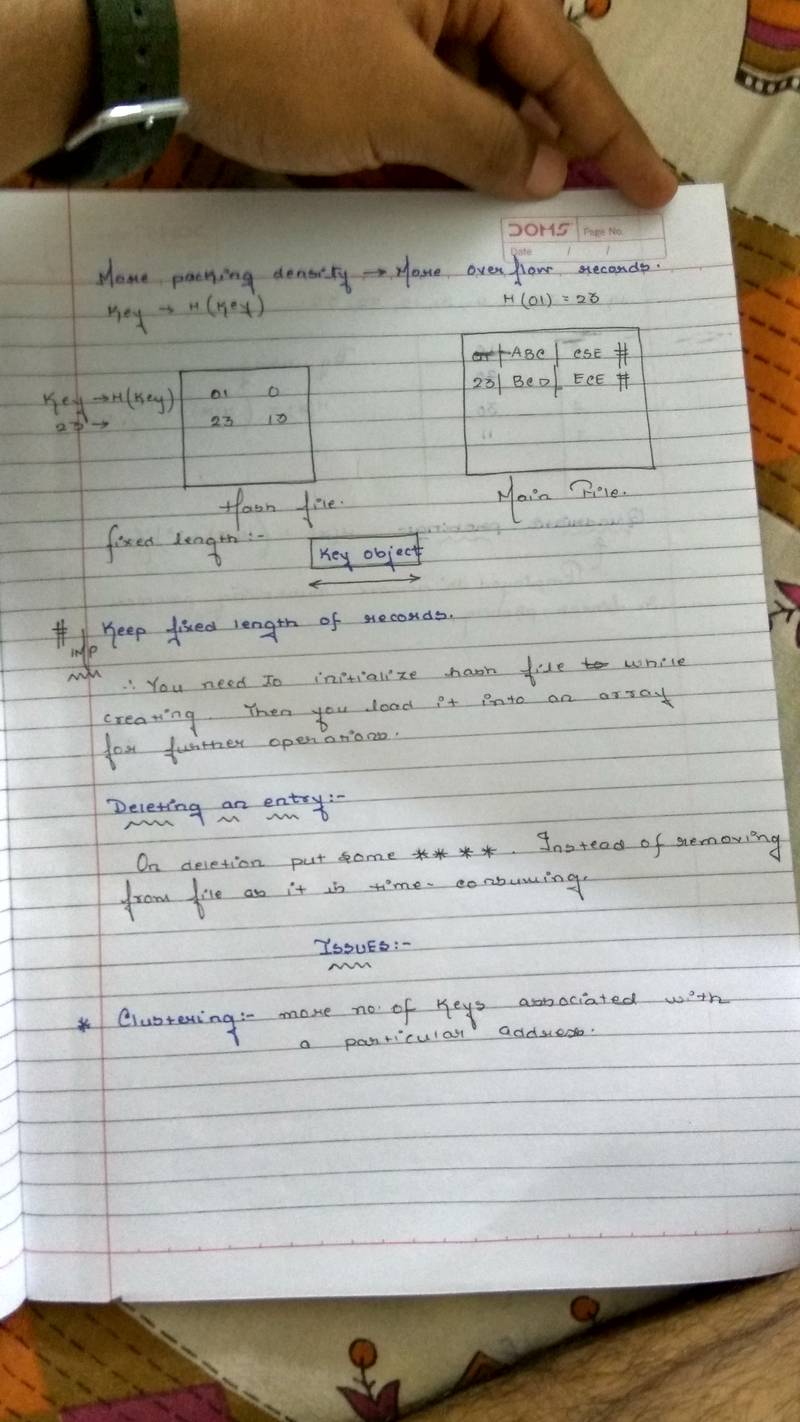 DOMS Page No.
Date / /
More packing density → More overflow records.
Key → H(Key)
H(01) = 23
Key → H(Key)
23 →
01 0
23 13
Hash file.
| ABC | CSE #
23 | BCD | ECE #
Main File.
fixed length :-
Key object
# Imp Keep fixed length of records.
∴ You need to initialize hash file to while
creating. Then you load it into an array
for further operations.
Deleting an entry:-
On deletion put some ****. Instead of removing
from file as it is time-consuming.
ISSUES:-
* Clustering:- more no. of Keys associated with
a particular address.